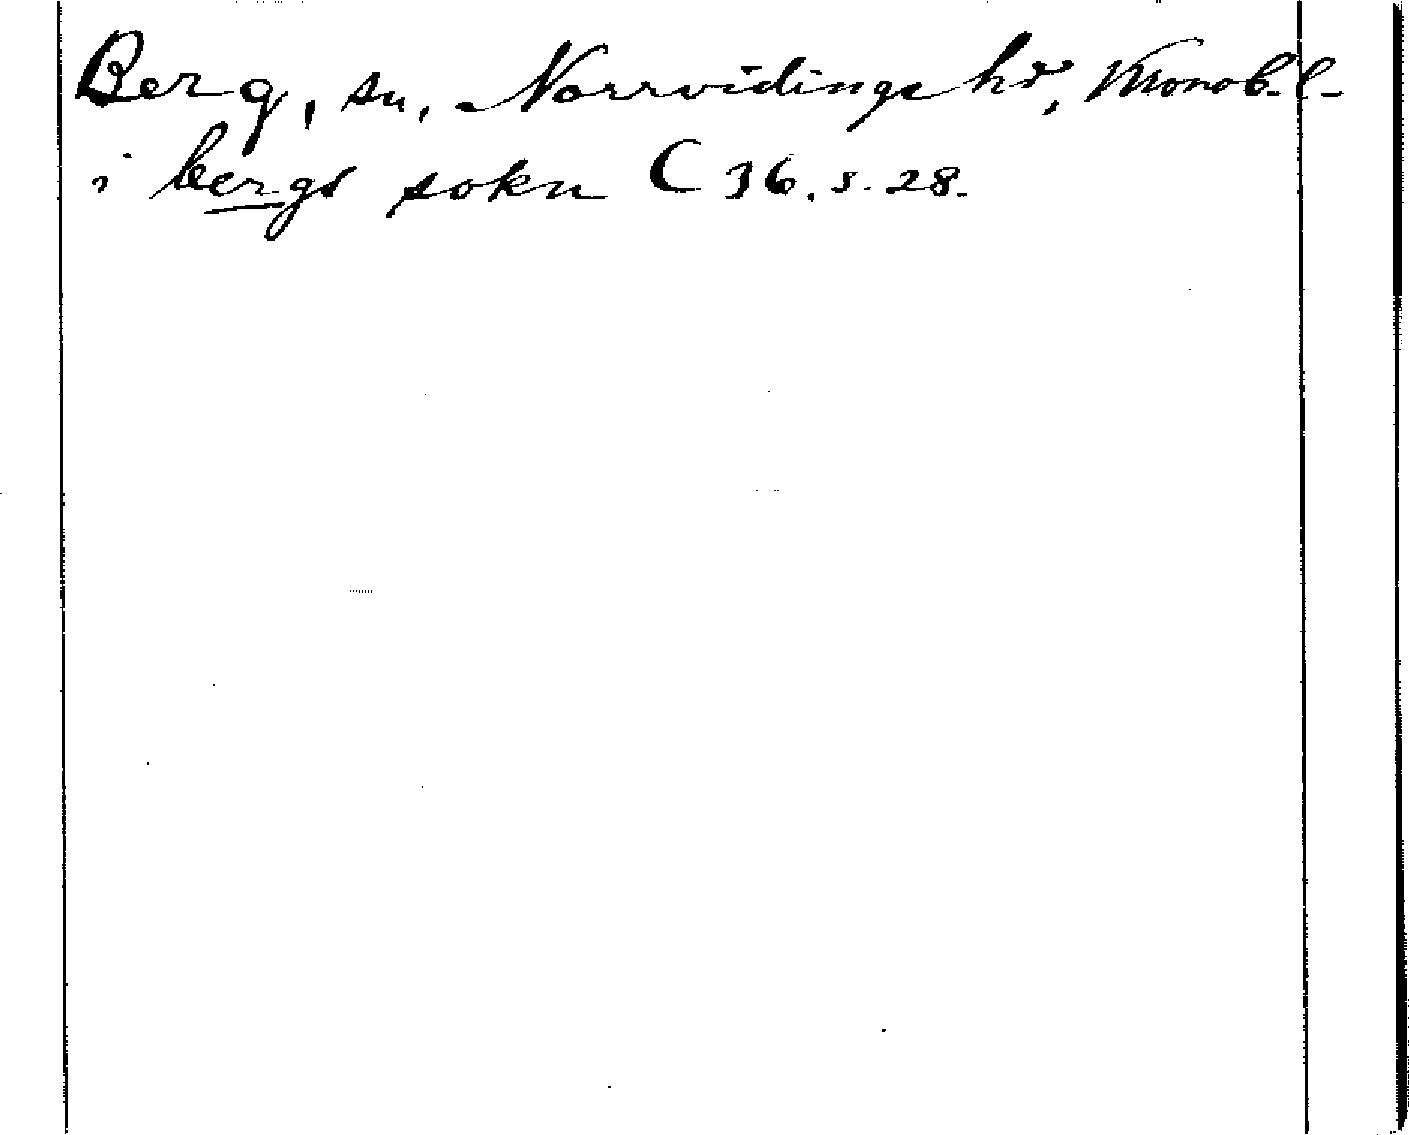 Berg, sn, Norrvidinge hd, Kronob. l.
i bergs sokn C 36. s. 28.